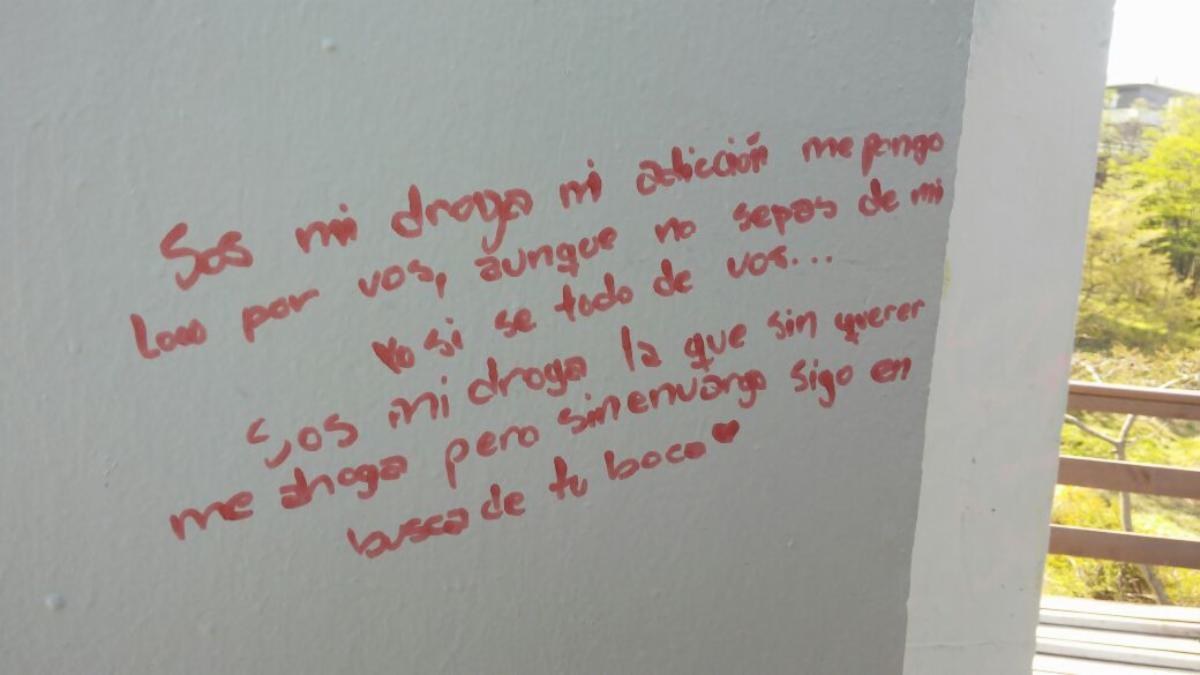 Sos mi droga mi adicción me pongo
loco por vos, aunque no sepas de mi
Yo si se todo de vos...
Sos mi droga la que sin querer
me ahoga pero sinenvargo sigo en
busca de tu boca ♥